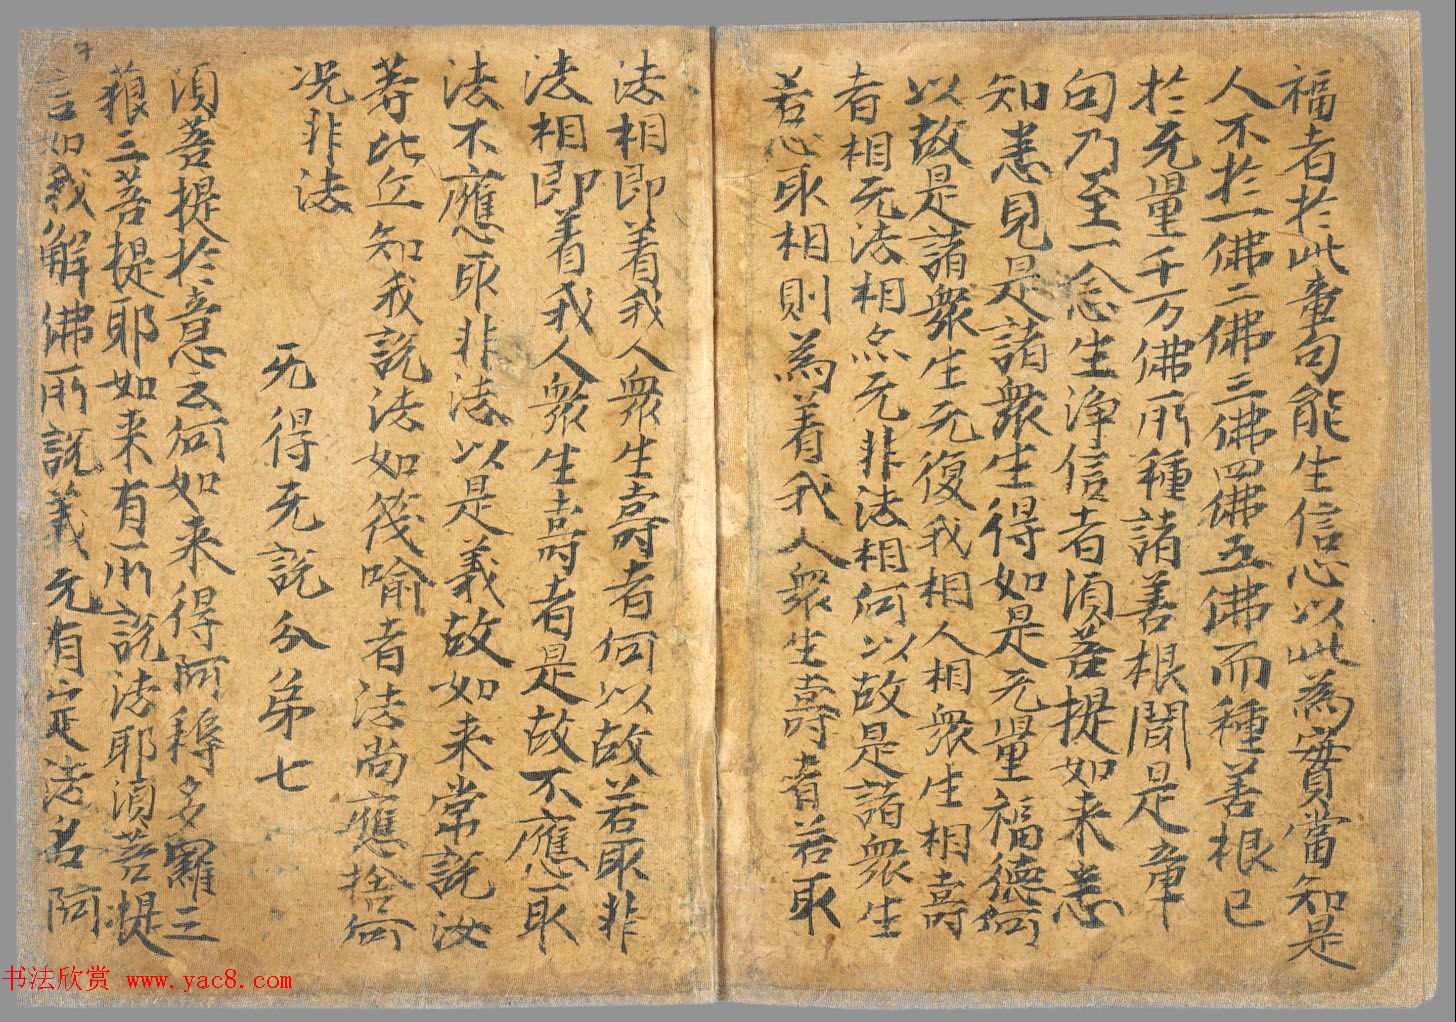 福者於此章句能生信心以此為實當知是
人不於一佛二佛三佛四佛五佛而種善根已
於无量千万佛所種諸善根聞是章
句乃至一念生淨信者須菩提如来悉
知悉見是諸衆生得如是无量福德何
以故是諸衆生无復我相人相衆生相壽
者相无法相亦无非法相何以故是諸衆生
若心取相則為着我人衆生壽者若取
法相即着我人衆生壽者何以故若取非
法相即着我人衆生壽者是故不應取
法不應取非法以是義故如来常說汝
等比丘知我說法如筏喻者法尚應捨何
况非法
无得无說分第七
須菩提於意云何如来得阿耨多羅三
藐三菩提耶如来有所說法耶須菩提
言如我解佛所說義无有定法名阿
书法欣赏 www.yac8.com